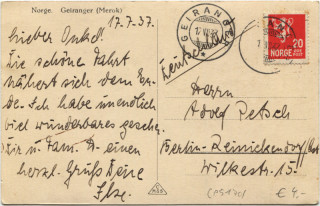 Norge. Geiranger (Merok)
17.7.37.
Lieber Onkel!
Die schöne Fahrt
nähert sich dem En-
de. Ich habe unendlich
viel wunderbares gesehen.
Dir u. Fam. einen
herzl. Gruß Deine
Ilse.
GEIRANGER
NORGE
20
Herrn
Adolf Petsch
Berlin-Reinickendorf/
Wilkestr. 15.
€ 4,-